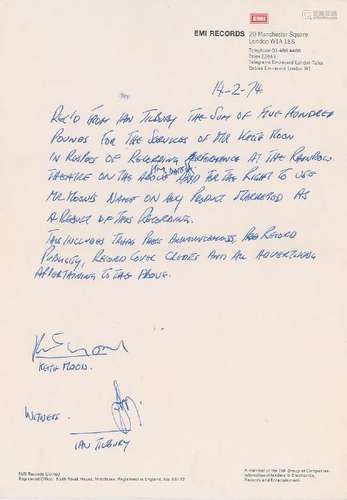 EMI
EMI RECORDS 20 Manchester Square
London W1A 1ES
Telephone 01-486 4488
Telex 22643
14-2-74
REC'D FROM IAN TILBURY THE SUM OF FIVE HUNDRED
POUNDS FOR THE SERVICES OF MR KEITH MOON
IN RESPECT OF RECORDING PERFORMANCE AT THE RAINBOW
THEATRE ON THE ABOVE DATE AND FOR THE RIGHT TO USE
MR MOON'S NAME ON ANY PRODUCT MARKETED AS
A RESULT OF THIS RECORDING.
THIS INCLUDES PRESS ANNOUNCEMENTS, RECORD
PUBLICITY, RECORD COVER CREDITS AND ALL ADVERTISING
APPERTAINING TO THE ABOVE.
KEITH MOON.
WITNESS
IAN TILBURY
EMI Records Limited
Registered Office: Blyth Road, Hayes, Middlesex. Registered in England, No.
A member of the EMI Group of Companies.
International Leaders in Electronics,
Records and Entertainment